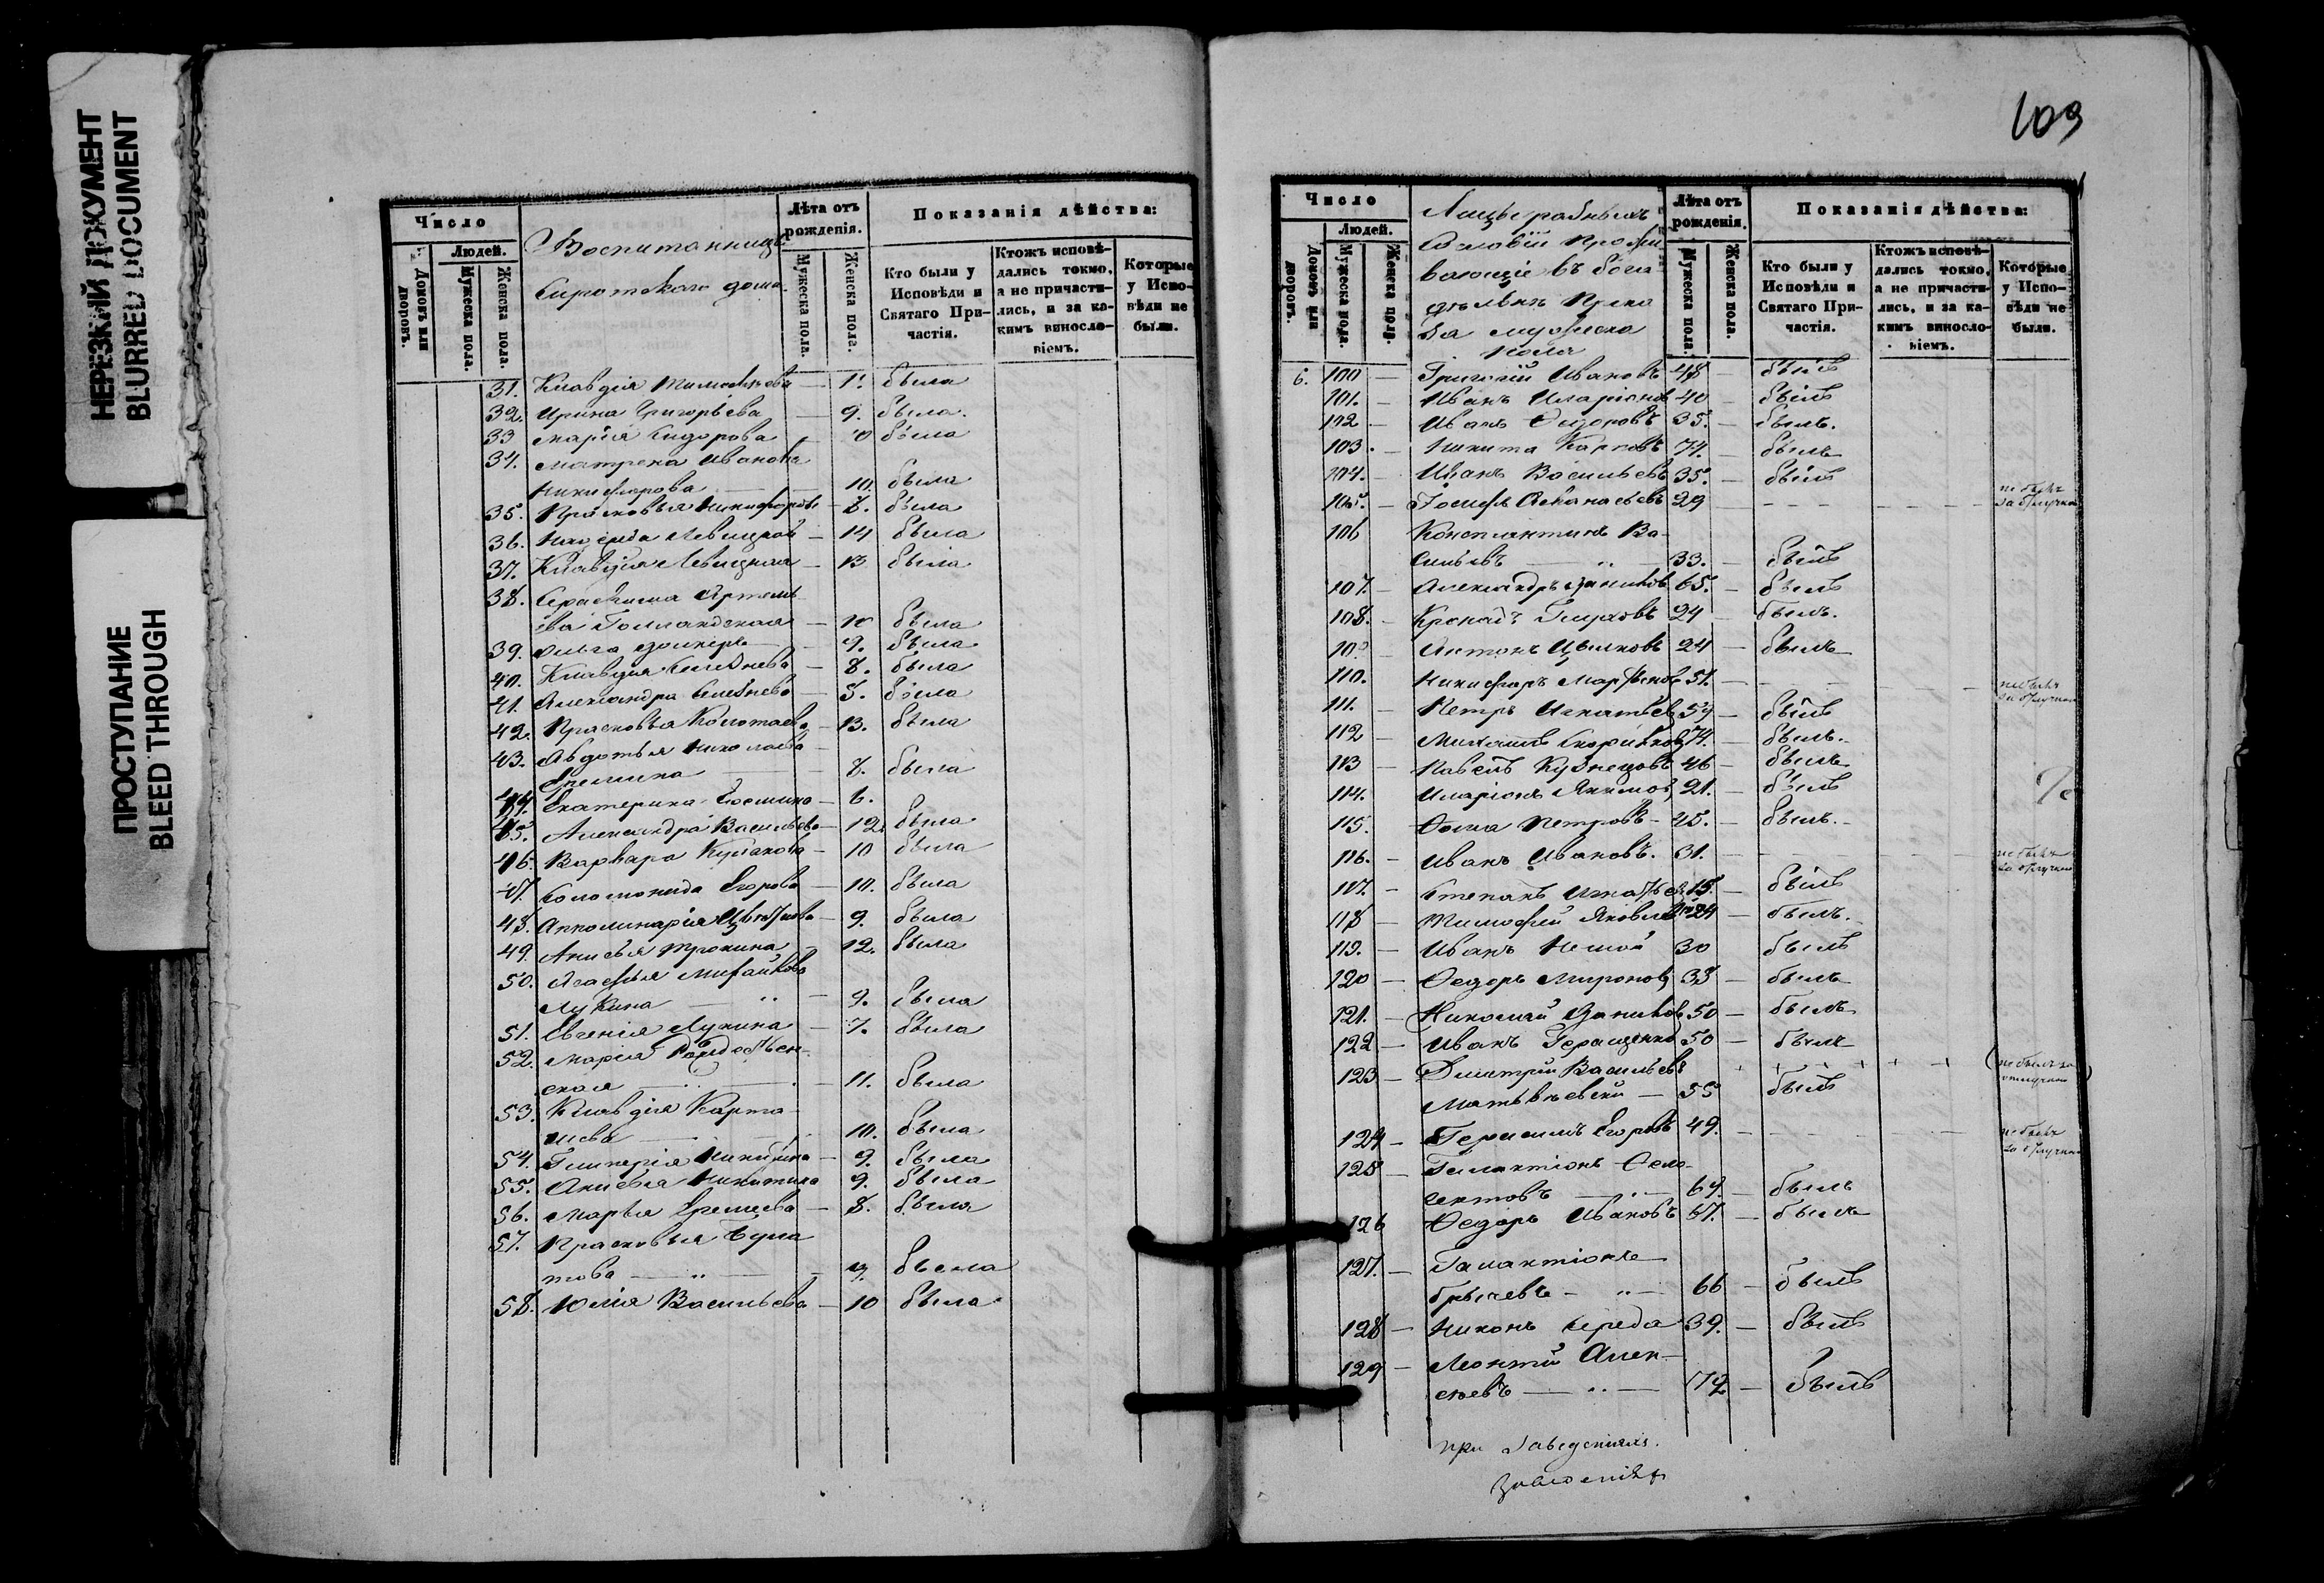 НЕРЕЗКИЙ ДОКУМЕНТ
BLURRED DOCUMENT
ПРОСТУПАНИЕ
BLEED THROUGH
Число
Людей.
Домовъ или дворовъ.
Мужеска пола.
Женска пола.
Воспитанницы
Сиротскаго дома.
Лѣта отъ рожденія.
Мужеска пола.
Женска пола.
Показанія дѣйства:
Кто были у Исповѣди и Святаго Причастія.
Ктожъ исповѣдались токмо, а не причастились, и за какимъ винословіемъ.
Которые у Исповѣди не были.
31. Клавдія Тимофеева — была
32. Ирина Григорьева — 9. была.
33 Марія Сидорова была
34. Матрена Иванова
Никифорова — 10. была
35. Прасковья Никифорова — 8. была
36. Левицкая — 14 была
37. Клавдія Левицкая — 13 была
38. Серафима Артемь
ева Голландская — 10 была
39. Ольга — 9. была
40. Клавдія Селезнева — 8. была
41. Александра Селезнева — 8. была
42. Прасковья — 13. была
43. Авдотья Николаева
8. была
44. Екатерина — 6.
45. Александра Васильева — 12. была
46. Варвара — 10 была
47. Соломонида Егорова — 10. была
48. Апполинарія Цвѣткова — 9. была
49. Анисья Трохина — 12. была
50. Агафья Михайлова
Лукина — 9. была
51. Евгенія Лукина — 7. была
52. Марія Рождествен-
ская — 11. была
53. Клавдія Карта-
шева — 10. была
54. Гликерія Никитина — 9. была
55. Анисья Никитина 9. была
56. Марья Еремеева — 8. была
57. Прасковья Була
това — 9. была
58. Юлія Васильева — 10 была
109
Число
Людей.
Домовъ или дворовъ.
Мужеска пола.
Женска пола.
Лица разныхъ
сословій прожи
вающіе въ бога
дѣльнѣ Прика
за мужеска
пола
Лѣта отъ рожденія.
Мужеска пола.
Женска пола.
Показанія дѣйства:
Кто были у Исповѣди и Святаго Причастія.
Ктожъ исповѣдались токмо, а не причастились, и за какимъ винословіемъ.
Которые у Исповѣди не были.
6. 100 — Григорій Ивановъ 48 — былъ
101. — Иванъ Иларіоновъ 40 — былъ
102 — Иванъ Ѳедоровъ 35. — былъ.
103. — Никита Карповъ 74. — былъ
104. — Иванъ Васильевъ 35. — былъ
105. — Іосифъ Аѳанасьевъ 29 — не былъ за отлучкой
106 Константинъ Ва-
сильевъ — 33. — былъ
107. — Александръ Даниловъ 65. — былъ
108. — Глуховъ 24 — былъ.
109 — Антонъ Цвилковъ 24 — былъ
110. Никифоръ Марченко 51. — не былъ за отлучкой
111. — Петръ Игнатьевъ 54 — былъ
112 — Михаилъ Скориковъ 74. — былъ.
113 — Павелъ Кузнецовъ 46 — былъ
114. Иларіонъ Якимовъ 21. — былъ
115. Ѳома Петровъ — 45. — былъ.
116. — Иванъ Ивановъ. 31. — не былъ за отлучкой
117. — Степанъ Игнатьевъ 15. — былъ
118 — Тимофей Яковлевъ 24 — былъ.
119. — Иванъ Немой 30 былъ
120 — Ѳедоръ Мироновъ 38 — былъ
121. — Николай Даниловъ 50 — былъ
122 — Иванъ Геращенко 50 — былъ
123 — Дмитрій Васильевъ + + + + + + (не былъ за отлучкой)
Матвѣевскій — 55 былъ
124 — Герасимъ Егоровъ 49. — не былъ за отлучкой
125 — Галактіонъ Ѳео-
ктистовъ — 64. — былъ
126 Ѳедоръ Ивановъ 57. — былъ
127. — Галактіонъ
66 — былъ
128 — Никонъ Середа 39. — былъ
129 — Леонтій Алек-
сѣевъ — 72 — былъ
при заведеніяхъ.